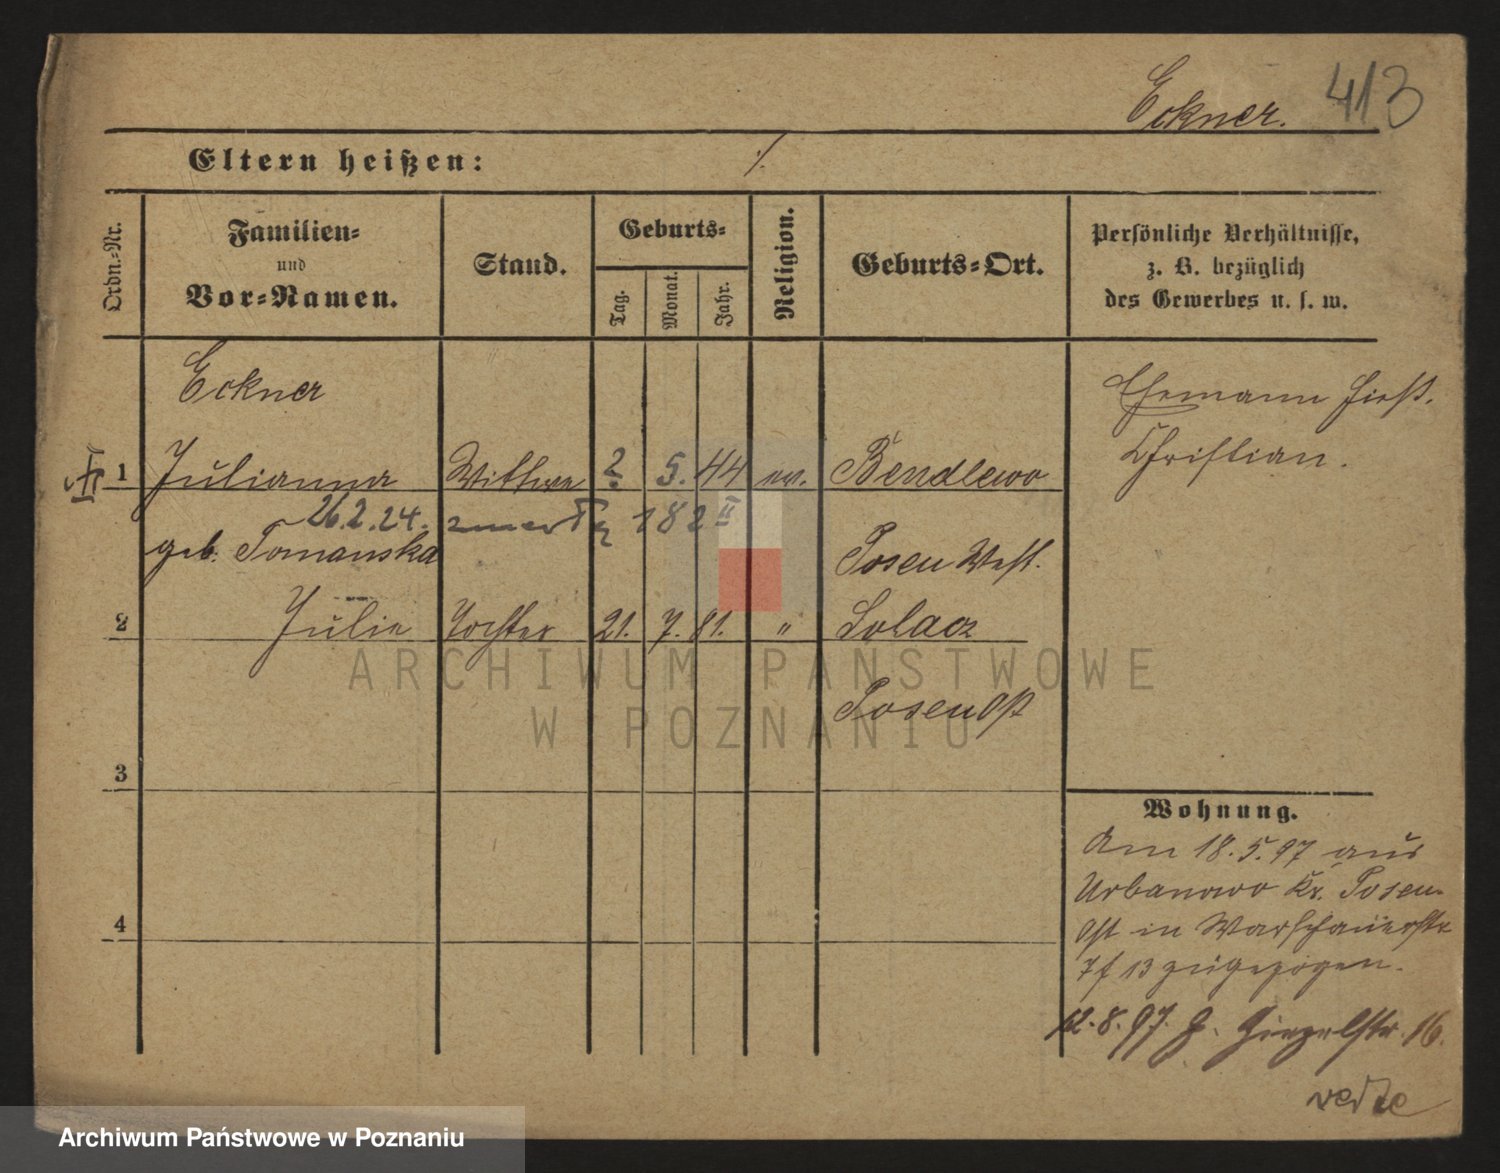 413
Eckner.
Eltern heißen: ·/.
Ordn.-Nr.
Familien-
und
Vor-Namen.
Stand.
Geburts-
Tag.
Monat.
Jahr.
Religion.
Geburts-Ort.
Persönliche Verhältnisse,
z. B. bezüglich
des Gewerbes u. s. w.
Eckner
Ehemann hieß.
Christian.
1 Julianna Wittwe ? 5. 44 ev. Bendlewo
26.2.24. zmarła 182 II
geb. Tomanska Posen West.
2 Julie Tochter 21. 7. 81. " Solacz
Posen Ost
3
4
Wohnung.
Am 18.5.97 aus
Urbanowo Kr. Posen-
Ost in Warschauerstr
7 13 zugezogen.
12.8.97.
16.
verte
ARCHIWUM PAŃSTWOWE
W POZNANIU
Archiwum Państwowe w Poznaniu